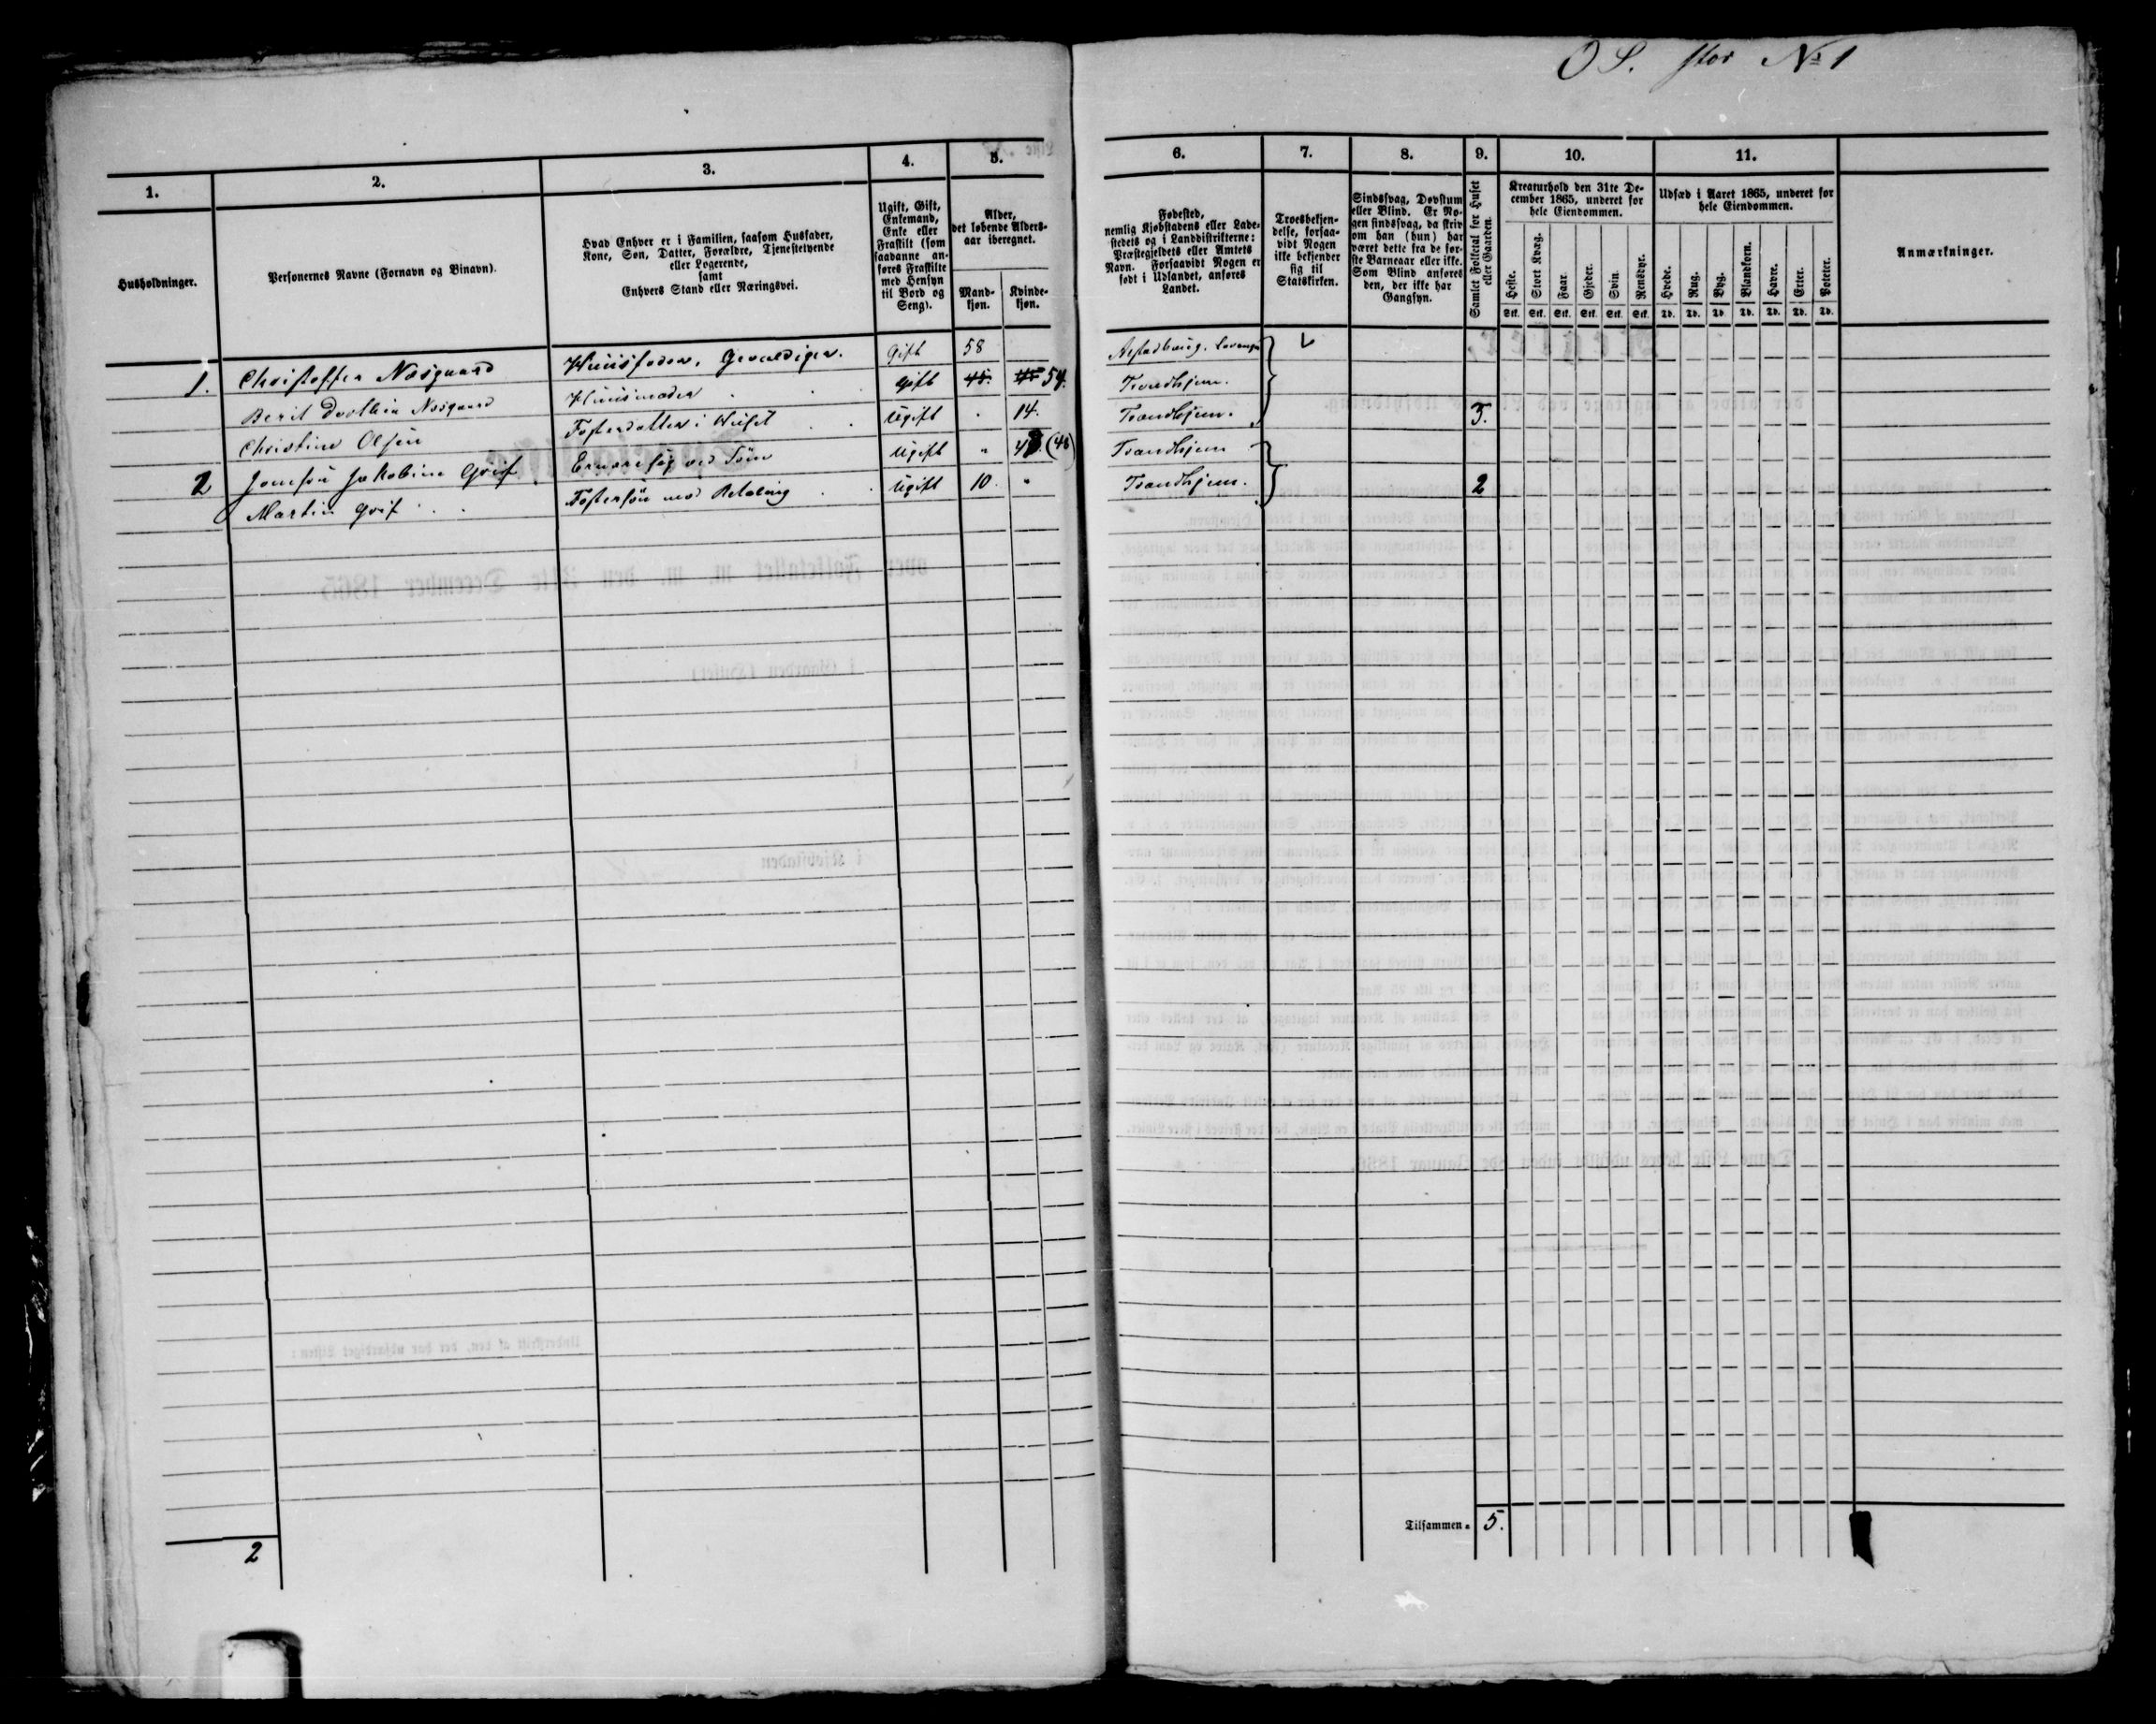 O S. stor № 1
1.
2.
3.
4.
5.
6.
7.
8.
9.
10.
11.
Husholdninger.
Personernes Navne (Fornavn og Binavn).
Hvad Enhver er i Familien, saasom Husfader,
Kone, Søn, Datter, Forældre, Tjenestetyende
eller Logerende,
samt
Enhvers Stand eller Næringsvei.
Ugift, Gift,
Enkemand,
Enke eller
Fraskilt (som
saadanne an-
føres Fraskilte
med Hensyn
til Bord og
Seng).
Alder,
det løbende Alders-
aar iberegnet.
Mand-
kjøn.
Kvinde-
kjøn.
Fødested,
nemlig Kjøbstadens eller Lade-
stedets og i Landdistrikterne:
Præstegjeldets eller Amtets
Navn. Forsaavidt Nogen er
født i Udlandet, anføres
Landet.
Troesbekjen-
delse, forsaa-
vidt Nogen
ikke bekjender
sig til
Statskirken.
Sindssvag, Døvstum
eller Blind. Er No-
gen sindssvag, da skriv
om han (hun) har
været dette fra de før-
ste Barneaar eller ikke.
Som Blind anføres
den, der ikke har
Gangsyn.
Samlet Folketal for Huset
eller Gaarden.
Kreaturhold den 31te De-
cember 1865, underet for
hele Eiendommen.
Heste. Stort Kvæg. Faar. Gjeder. Svin. Rensdyr.
Stk. Stk. Stk. Stk. Stk. Stk.
Udsæd i Aaret 1865, underet for
hele Eiendommen.
Hvede. Rug. Byg. Blandkorn. Havre. Erter. Poteter.
Td. Td. Td. Td. Td. Td. Td.
Anmærkninger.
1. Christoffer Næsgaard Huusfader, Gevaldiger. Gift 58
Berit Dorthea Næsgaard Huusmoder Gift 45. 54. Trondhjem.
Christine Olsen Fosterdatter i Huset Ugift 14. Trondhjem. 3.
2 Jakobine Grif Ernærer sig ved Søm Ugift " (48) Trondhjem
Martin Grif Fostersøn mod Betaling Ugift 10 " Trondhjem. 2
Tilsammen 5.
2